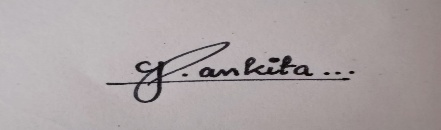 Y. ankita...